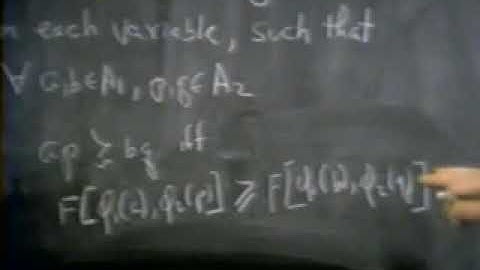 each variable, such that
∀ a,b∈A₁, p,q∈A₂
ap ≿ bq iff
F[φ₁(a), φ₂(p)] ≥ F[φ₁(b), φ₂(q)]